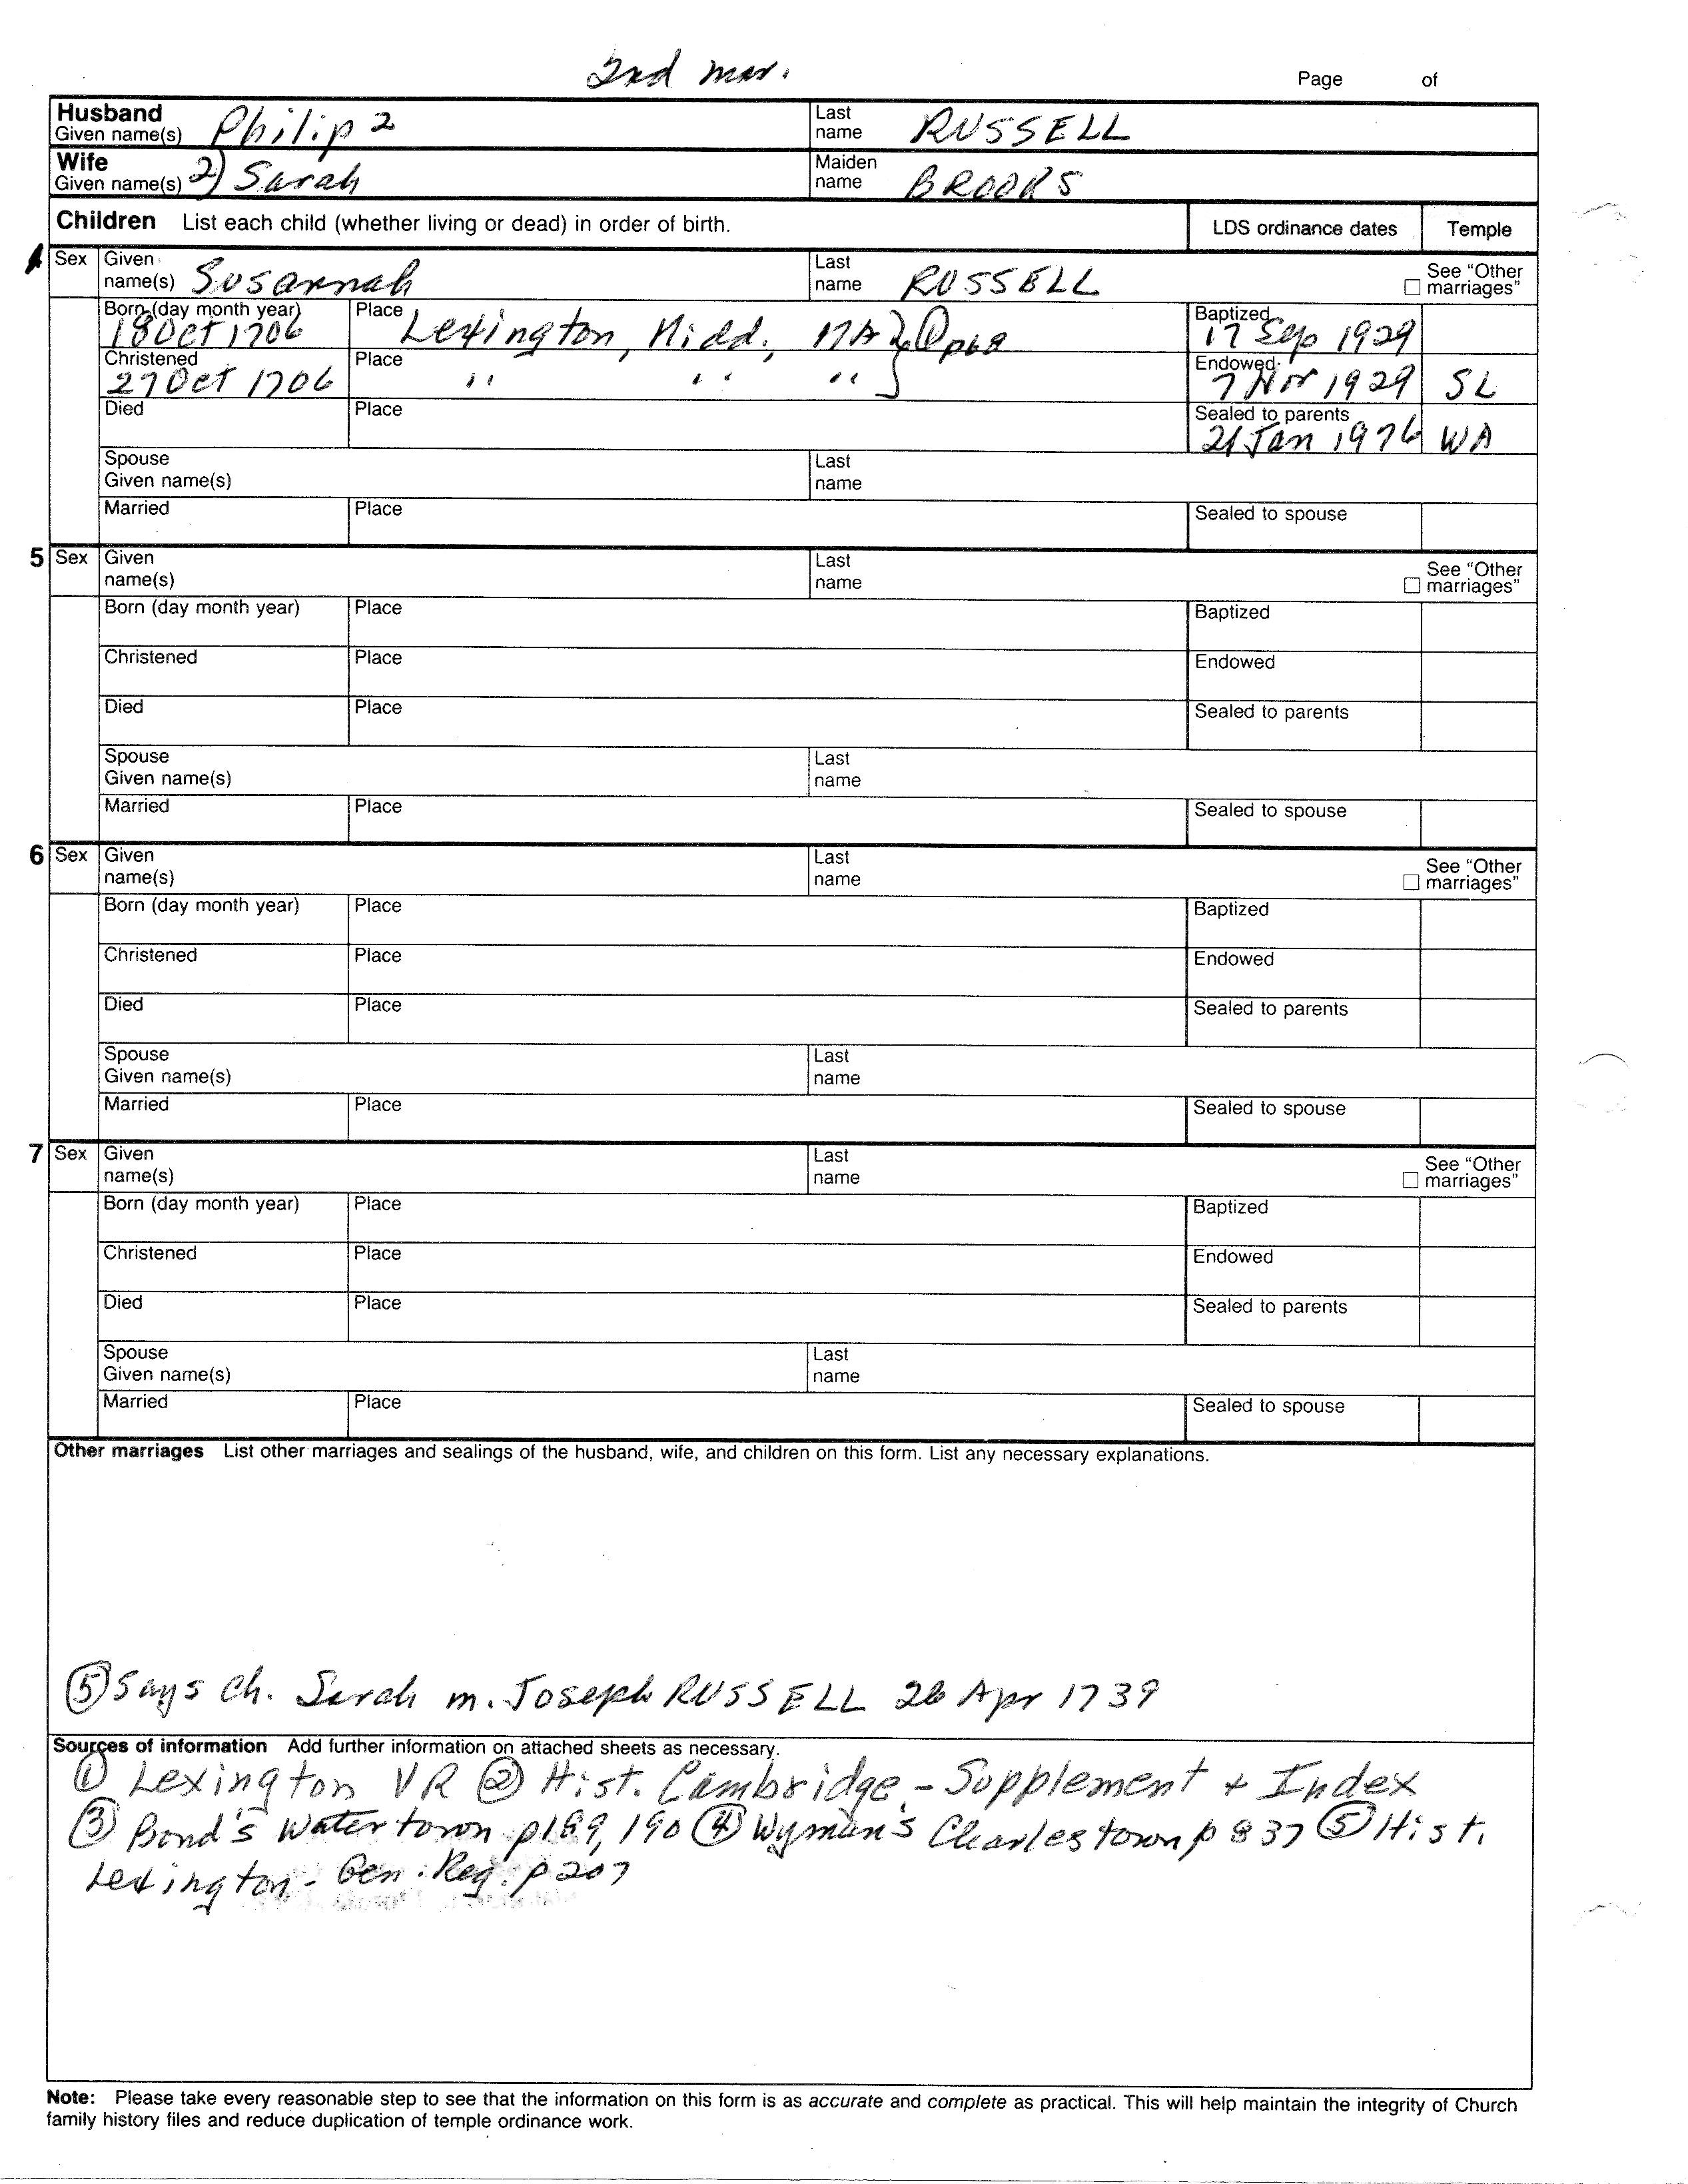 2nd mar.
Page of
Husband Given name(s) Philip 2 Last name RUSSELL
Wife Given name(s) 2) Sarah Maiden name BROOKS
Children List each child (whether living or dead) in order of birth. LDS ordinance dates Temple
Sex Given name(s) Susannah Last name RUSSELL ☐ See "Other marriages"
Born (day month year) 18 Oct 1706 Place Lexington, Midd., MA Baptized 17 Sep 1929
Christened 27 Oct 1706 Place " " " Endowed 7 Nov 1929 SL
Died Place Sealed to parents 21 Jan 1976 WA
Spouse Given name(s) Last name
Married Place Sealed to spouse
5 Sex Given name(s) Last name ☐ See "Other marriages"
Born (day month year) Place Baptized
Christened Place Endowed
Died Place Sealed to parents
Spouse Given name(s) Last name
Married Place Sealed to spouse
6 Sex Given name(s) Last name ☐ See "Other marriages"
Born (day month year) Place Baptized
Christened Place Endowed
Died Place Sealed to parents
Spouse Given name(s) Last name
Married Place Sealed to spouse
7 Sex Given name(s) Last name ☐ See "Other marriages"
Born (day month year) Place Baptized
Christened Place Endowed
Died Place Sealed to parents
Spouse Given name(s) Last name
Married Place Sealed to spouse
Other marriages List other marriages and sealings of the husband, wife, and children on this form. List any necessary explanations.
⑤ Says Ch. Sarah m. Joseph RUSSELL Apr 1739
Sources of information Add further information on attached sheets as necessary.
① Lexington VR ② Hist. Cambridge - Supplement + Index
③ Bond's Watertown p189, 190 ④ Wyman's Charlestown p 837 ⑤ Hist.
Lexington - Gen. Reg. p 207
Note: Please take every reasonable step to see that the information on this form is as accurate and complete as practical. This will help maintain the integrity of Church
family history files and reduce duplication of temple ordinance work.